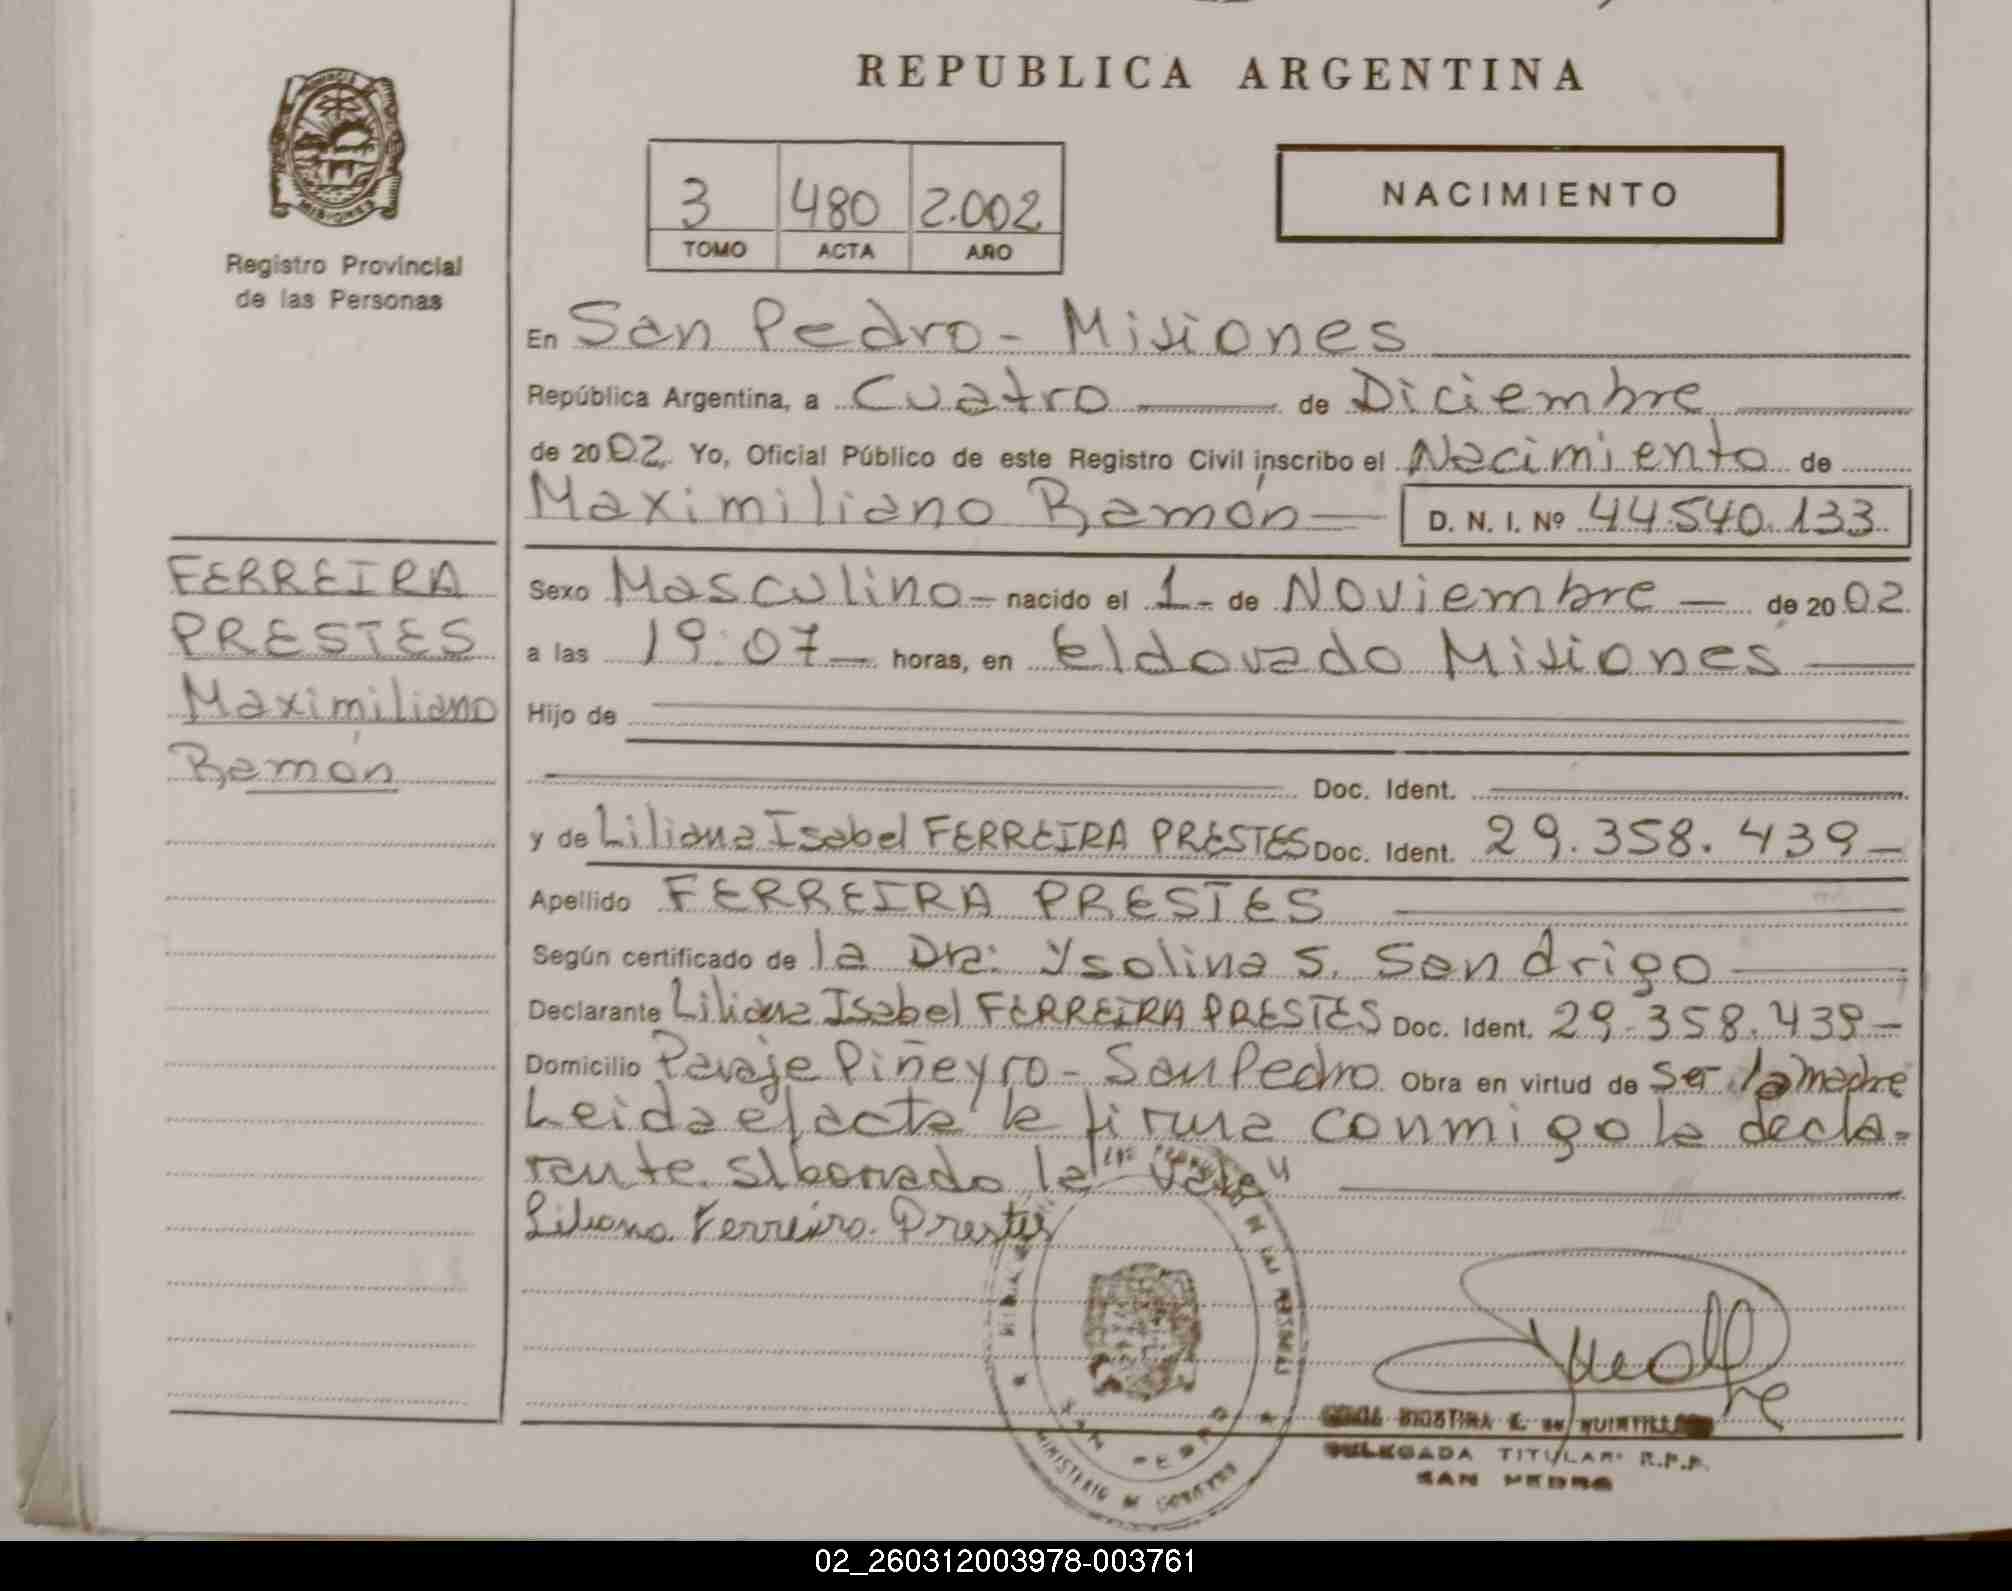 REPUBLICA ARGENTINA
MISIONES
Registro Provincial
de las Personas
3 480 2.002
TOMO ACTA AÑO
NACIMIENTO
En San Pedro - Misiones
República Argentina, a Cuatro de Diciembre
de 2002. Yo, Oficial Público de este Registro Civil inscribo el Nacimiento de
Maximiliano Ramón — D. N. I. Nº 44.540.133
FERREIRA
PRESTES
Maximiliano
Ramón
Sexo Masculino - nacido el 1- de Noviembre - de 2002
a las 19:07 — horas, en Eldorado Misiones
Hijo de
Doc. Ident.
y de Liliana Isabel FERREIRA PRESTES Doc. Ident. 29.358.439-
Apellido FERREIRA PRESTES
Según certificado de la Dra: Ysolina S. Sandrigo
Declarante Liliana Isabel FERREIRA PRESTES Doc. Ident. 29.358.439-
Domicilio Paraje Piñeyro - San Pedro Obra en virtud de ser la madre
Leida el acta la firma conmigo la decla-
rante. S/borrado la "Vale"
Liliana Ferreira Prestes
SAN PEDRO
MINISTERIO DE GOBIERNO
DELEGADA TITULAR R.P.P.
SAN PEDRO
02_260312003978-003761